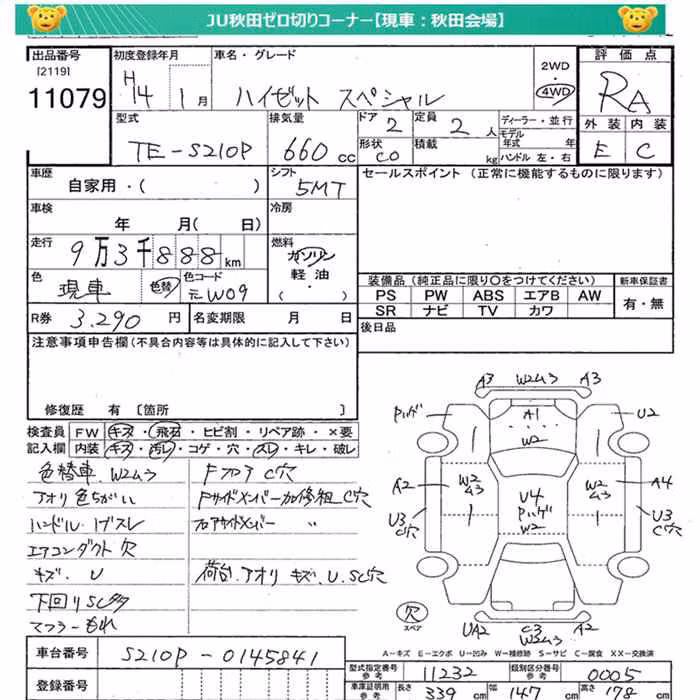 JU秋田ゼロ切りコーナー【現車：秋田会場】
出品番号 初度登録年月 車名・グレード 2WD・4WD 評価点
[2119]
11079
H14 1月 ハイゼット スペシャル RA
型式 排気量 ドア 2 定員 2人 ディーラー・並行 外装 内装
モデル年式 年
TE-S210P 660cc 形状 CO 積載 kg ハンドル 左・右 E C
車歴 シフト セールスポイント（正常に機能するものに限ります）
自家用・( ) 5MT
車検 冷房
年 月(日)
走行 燃料
9万3千888km ガソリン
軽油
・( )
色 色替 色コード 装備品（純正品に限り○をつけてください） 新車保証書
現車 元W09 PS PW ABS エアB AW 有・無
SR ナビ TV カワ
R券 3.290円 名変期限 月 日 後日品
注意事項申告欄（不具合内容等は具体的に記入して下さい）
修復歴 有 [箇所 ]
検査員 FW キズ・飛石・ヒビ割・リペア跡・×要
記入欄 内装 キズ・汚レ・コゲ・穴・スレ・キレ・破レ
色替車 W2ムラ Fフロア C穴
アオリ色ちがい Fサイドメンバー加修粗 C穴
ハンドルハゲスレ フロアサイドメンバー 〃
エアコンダクト欠
キズ、U 荷台、アオリ キズ、U、SC穴
下回りSC多
マフラーもれ
A3 W2ムラ A3
Pハゲ A1 U2
W2
A2 W2 A3 U4 W2 A3 A4
U3 C穴 Pハゲ U3 C穴
W2
欠
スペア
UA2 C3 A2
W2ムラ
A－キズ E－エクボ U－凹み W－補修跡 S－サビ C－腐食 XX－交換済
車台番号 S210P-0145841
型式指定番号 参考 11232 類別区分番号 参考 0005
登録番号 車庫証明用 参考 長さ 339cm 幅 147cm 高さ 178cm